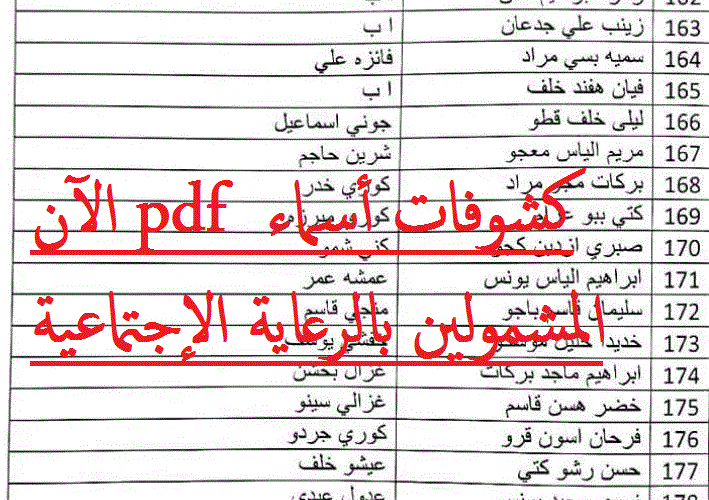 163 زينب علي جدعان ا ب
164 سميه بسي مراد فائزه علي
165 فيان هفند خلف ا ب
166 ليلى خلف قطو جوني اسماعيل
167 مريم الياس معجو شرين حاجم
168 بركات مجر مراد كوري خدر
كشوفات أسماء pdf الآن
169 كتي ببو كوري ميرزه
170 صبري ازدين كني شمو
171 ابراهيم الياس يونس عمشه عمر
المشمولين بالرعاية الإجتماعية
172 سليمان قاسم باجو منجي قاسم
173 خديدا خليل
174 ابراهيم ماجد بركات غزال بخشن
175 خضر هسن قاسم غزالي سينو
176 فرحان اسون قرو كوري جردو
177 حسن رشو كتي عيشو خلف
عدول عيدي